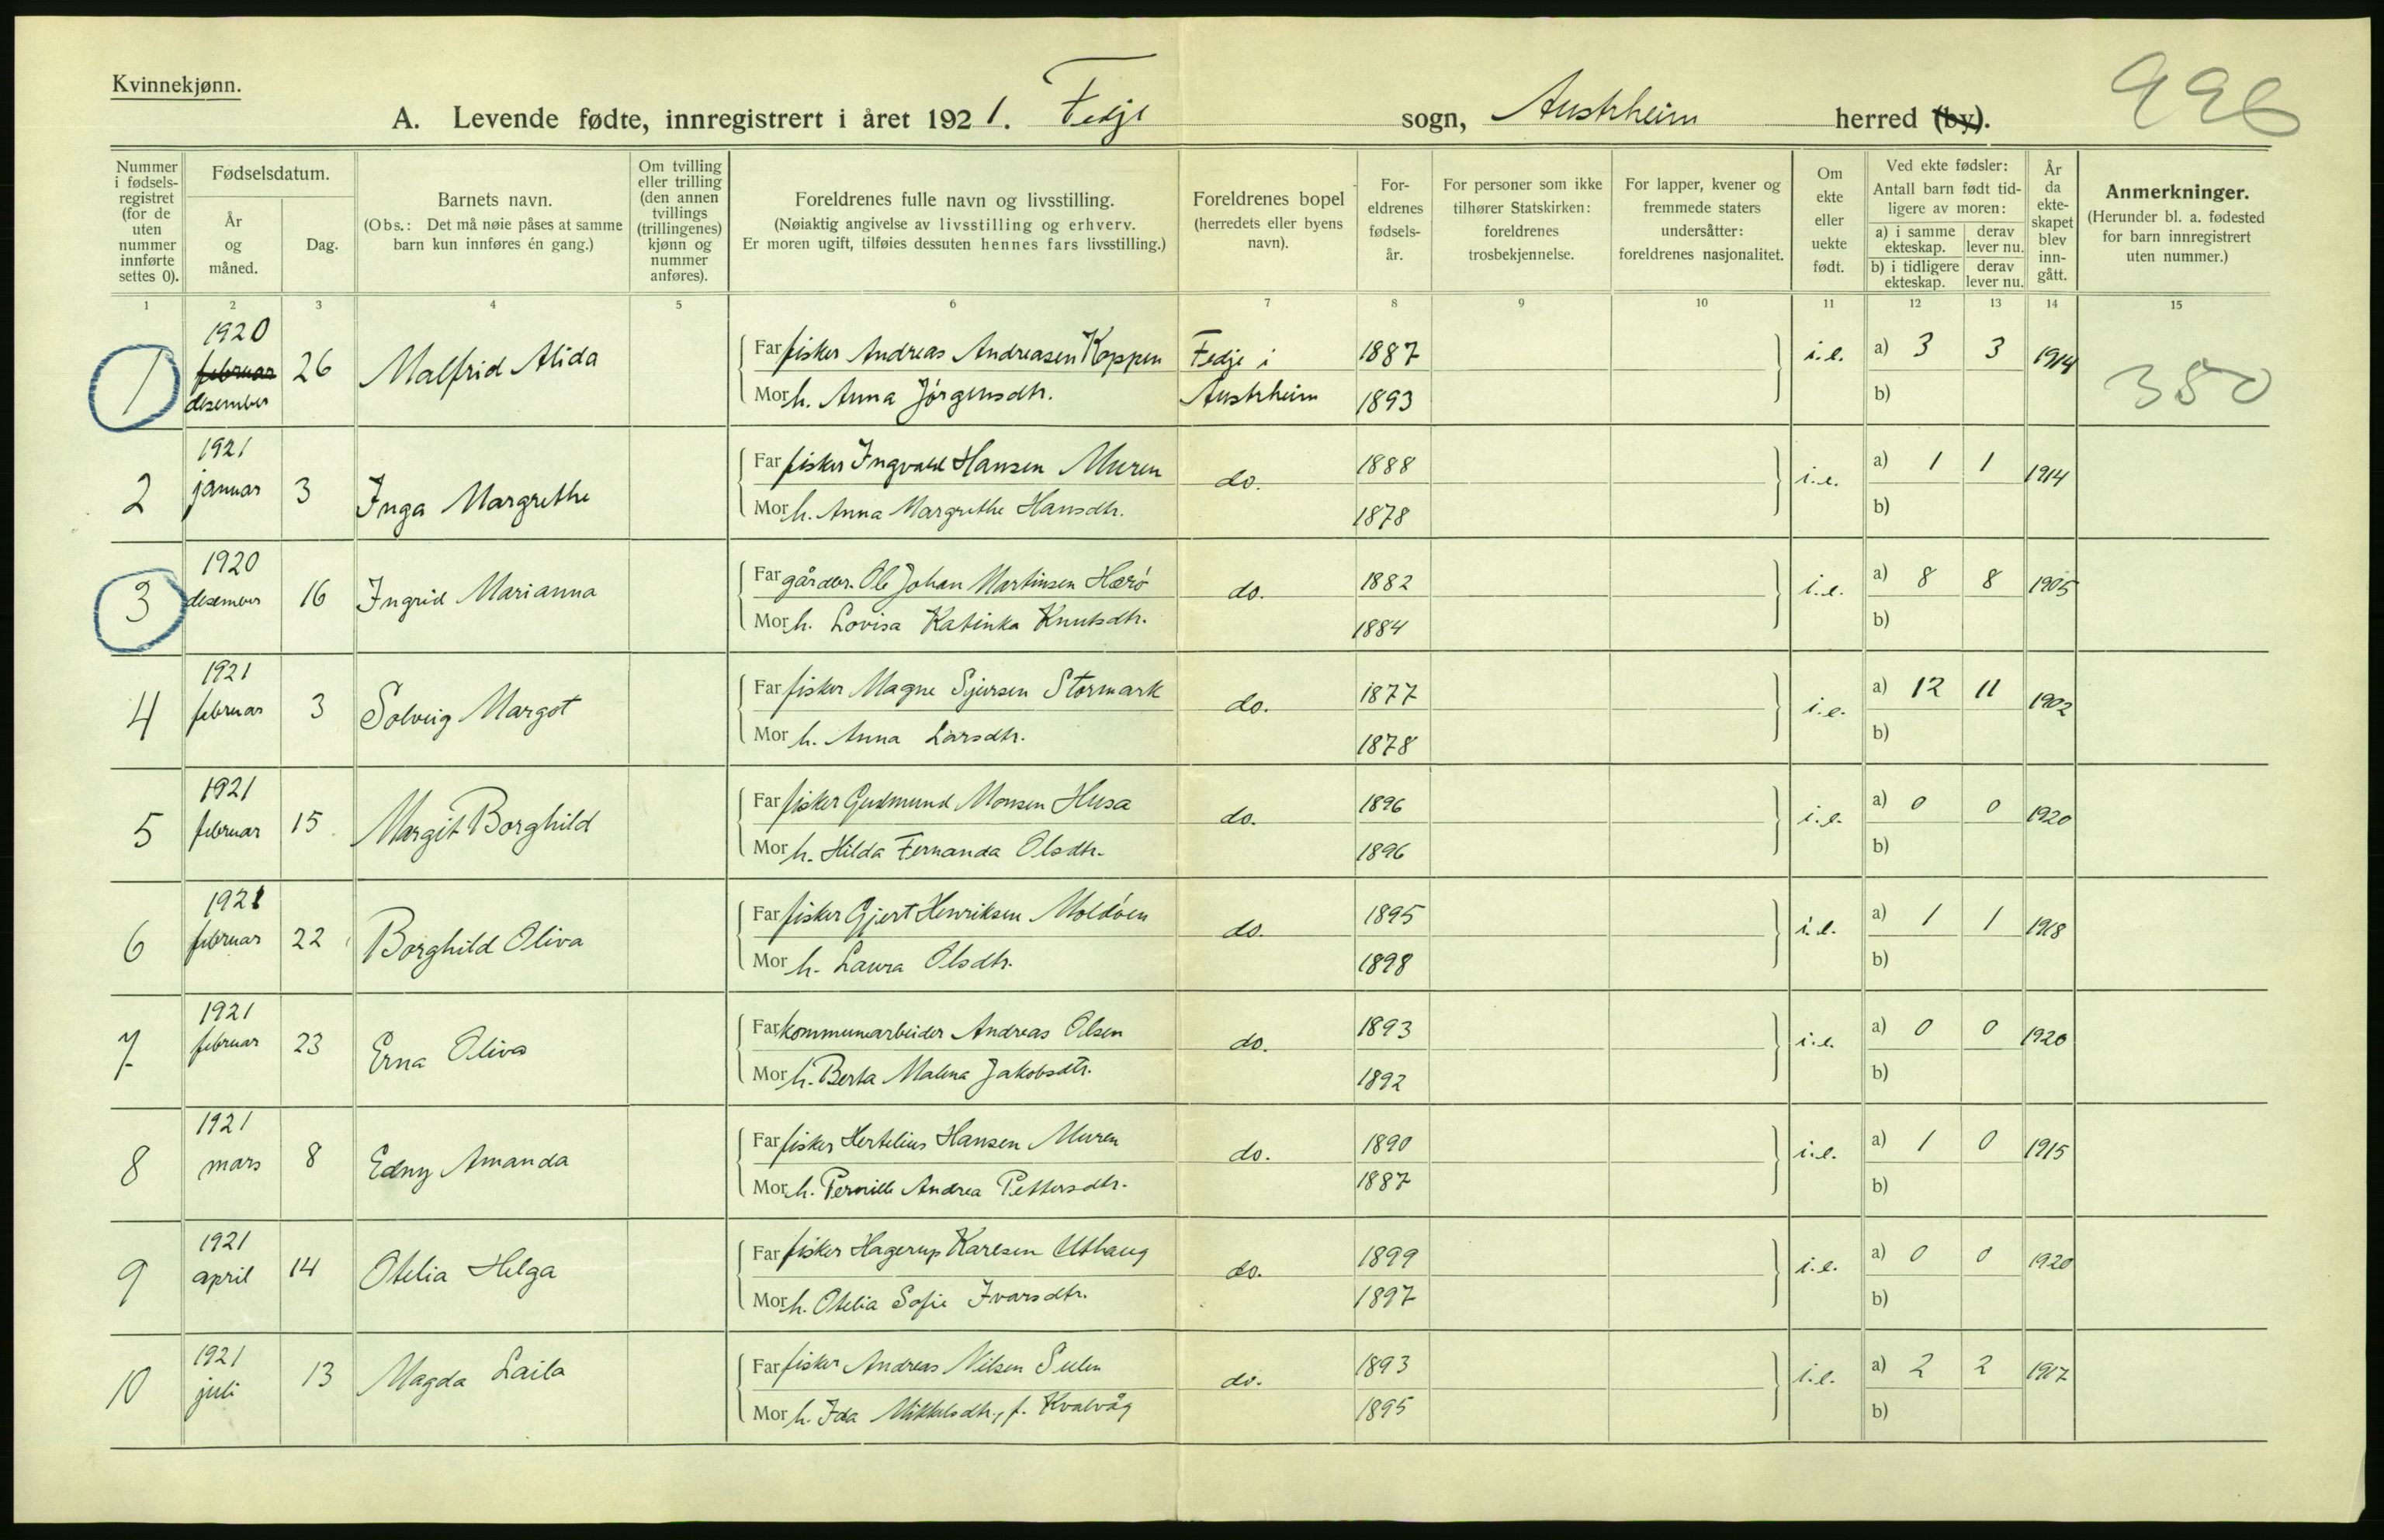 Kvinnekjønn.
996
A. Levende fødte, innregistrert i året 1921. Fedje sogn, Austrheim herred (by).
Nummer i fødsels-registret (for de uten nummer innførte settes 0).
Fødselsdatum.
År og måned.
Dag.
Barnets navn.
(Obs.: Det må nøie påses at samme barn kun innføres én gang.)
Om tvilling eller trilling (den annen tvillings (trillingenes) kjønn og nummer anføres).
Foreldrenes fulle navn og livsstilling.
(Nøiaktig angivelse av livsstilling og erhverv.
Er moren ugift, tilføies dessuten hennes fars livsstilling.)
Foreldrenes bopel (herredets eller byens navn).
For-eldrenes fødsels-år.
For personer som ikke tilhører Statskirken: foreldrenes trosbekjennelse.
For lapper, kvener og fremmede staters undersåtter: foreldrenes nasjonalitet.
Om ekte eller uekte født.
Ved ekte fødsler:
Antall barn født tid-ligere av moren:
a) i samme ekteskap. derav lever nu.
b) i tidligere ekteskap. derav lever nu.
År da ekte-skapet blev inn-gått.
Anmerkninger.
(Herunder bl. a. fødested for barn innregistrert uten nummer.)
1 2 3 4 5 6 7 8 9 10 11 12 13 14 15
1 1920 februar desember 26 Malfrid Alida Far fisker Andreas Andreasen Koppen Fedje i 1887 i.e. a) 3 3 1914 350
Mor h. Anna Jørgensdtr. Austrheim 1893 b)
2 1921 januar 3 Inga Margrethe Far fisker Ingvald Hansen Muren do. 1888 i.e. a) 1 1 1914
Mor h. Anna Margrethe Hansdtr. 1878 b)
3 1920 desember 16 Ingrid Marianna Far gårdbr. Ole Johan Martinsen Hærø do. 1882 i.e. a) 8 8 1905
Mor h. Lovisa Katinka Knutsdtr. 1884 b)
4 1921 februar 3 Solveig Margot Far fisker Magne Sjursen Stormark do. 1877 i.e. a) 12 11 1902
Mor h. Anna Larsdtr. 1878 b)
5 1921 februar 15 Margit Borghild Far fisker Gudmund Monsen Husa do. 1896 i.e. a) 0 0 1920
Mor h. Hilda Fernanda Olsdtr. 1896 b)
6 1921 februar 22 Borghild Oliva Far fisker Gjert Henriksen Moldøen do. 1895 i.e. a) 1 1 1918
Mor h. Laura Olsdtr. 1898 b)
7 1921 februar 23 Erna Oliva Far kommunearbeider Andreas Olsen do. 1893 i.e. a) 0 0 1920
Mor h. Berta Malena Jakobsdtr. 1892 b)
8 1921 mars 8 Edny Amanda Far fisker Hertelius Hansen Muren do. 1890 i.e. a) 1 0 1915
Mor h. Pernille Andrea Pettersdtr. 1887 b)
9 1921 april 14 Otelia Helga Far fisker Hagerup Karlsen Uthaug do. 1899 i.e. a) 0 0 1920
Mor h. Otelia Sofie Ivarsdtr. 1897 b)
10 1921 juli 13 Magda Laila Far fisker Andreas Nilsen Sulen do. 1893 i.e. a) 2 2 1917
Mor h. Ida Mikkelsdtr., f. Kvalvåg 1895 b)